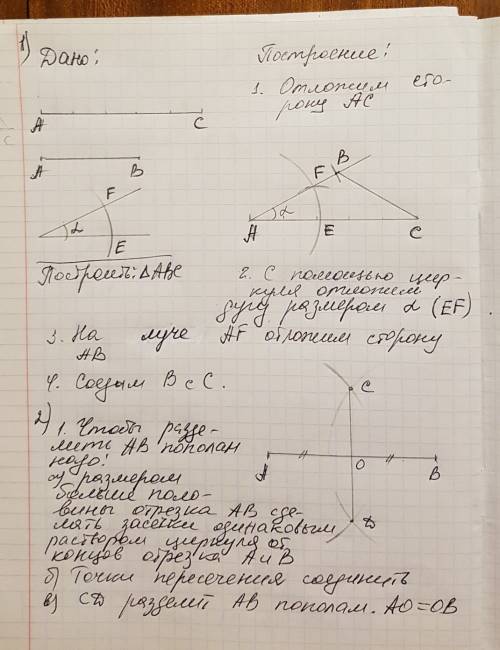 1) Дано:
A C
A B
F
α
E
Построить: ΔABC
Построение:
1. Отложим сто-
рону AC
B
F
A α E C
2. С помощью цир-
куля отложим
дугу размером α (EF)
3. На луче AF отложим сторону
AB
4. Соедим B с C.
2) 1. Чтобы разде-
лить AB пополам
надо:
а) размером
больше поло-
вины отрезка AB сде-
лать засечки одинаковым
раствором циркуля от
концов отрезка A и B
б) Точки пересечения соединить
в) CD разделит AB пополам. AO=OB
C
A O B
D